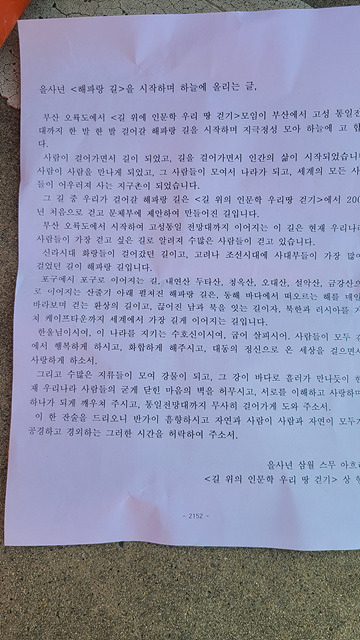 을사년 <해파랑 길>을 시작하며 하늘에 올리는 글,
부산 오륙도에서 <길 위에 인문학 우리 땅 걷기>모임이 부산에서 고성 통일전
대까지 한 발 한 발 걸어갈 해파랑 길을 시작하며 지극정성 모아 하늘에 고 합
다.
사람이 걸어가면서 길이 되었고, 길을 걸어가면서 인간의 삶이 시작되었습니
사람이 사람을 만나게 되었고, 그 사람들이 모여서 나라가 되고, 세계의 모든 사
들이 어우러져 사는 지구촌이 되었습니다.
그 길 중 우리가 걸어갈 해파랑 길은 <길 위의 인문학 우리땅걷기>에서 200
년 처음으로 걷고 문체부에 제안하여 만들어진 길입니다.
부산 오륙도에서 시작하여 고성통일 전망대까지 이어지는 이 길은 현재 우리나라
사람들이 가장 걷고 싶은 길로 알려져 수많은 사람들이 걷고 있습니다.
신라시대 화랑들이 걸어갔던 길이고, 고려나 조선시대에 사대부들이 가장 많이
걸었던 길이 해파랑 길입니다.
포구에서 포구로 이어지는 길, 내연산 두타산, 청옥산, 오대산, 설악산, 금강산으
로 이어지는 산줄기 아래 펼쳐진 해파랑 길은, 동해 바다에서 떠오르는 해를 매일
바라보며 걷는 환상의 길이고, 끊어진 남과 북을 잇는 길이자, 북한과 러시아를 거
쳐 케이프타운까지 세계에서 가장 길게 이어지는 길입니다.
한울님이시여, 이 나라를 지키는 수호신이시여, 굽어 살펴시어, 사람들이 모두 길
에서 행복하게 하시고, 화합하게 해주시고, 대동의 정신으로 온 세상을 걸으면서
사랑하게 하소서,
그리고 수많은 지류들이 모여 강물이 되고, 그 강이 바다로 흘러가 만나듯이 현
재 우리나라 사람들의 굳게 닫힌 마음의 벽을 허무시고, 서로를 이해하고 사랑하며
하나가 되게 깨우쳐 주시고, 통일전망대까지 무사히 걸어가게 도와 주소서.
이 한 잔술을 드리오니 반가이 흠향하시고 자연과 사람이 사람과 자연이 모두가
공경하고 경외하는 그러한 시간을 허락하여 주소서.
을사년 삼월 스무 아흐레
<길 위의 인문학 우리 땅 걷기> 상 향
- 2152 -